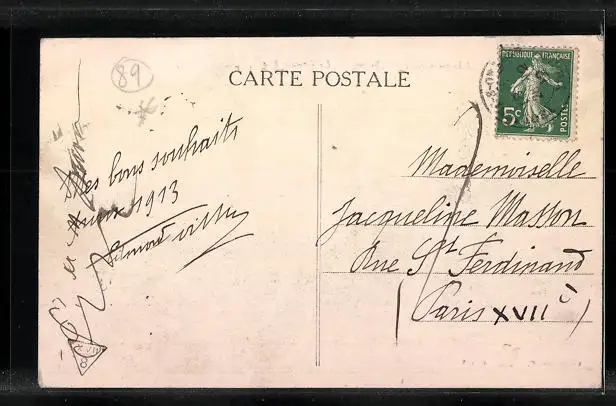 89
CARTE POSTALE
RÉPUBLIQUE FRANÇAISE
5c
POSTES
Mes bons souhaits
1913
Mademoiselle
Jacqueline Masson
Rue St Ferdinand
(Paris XVII e)